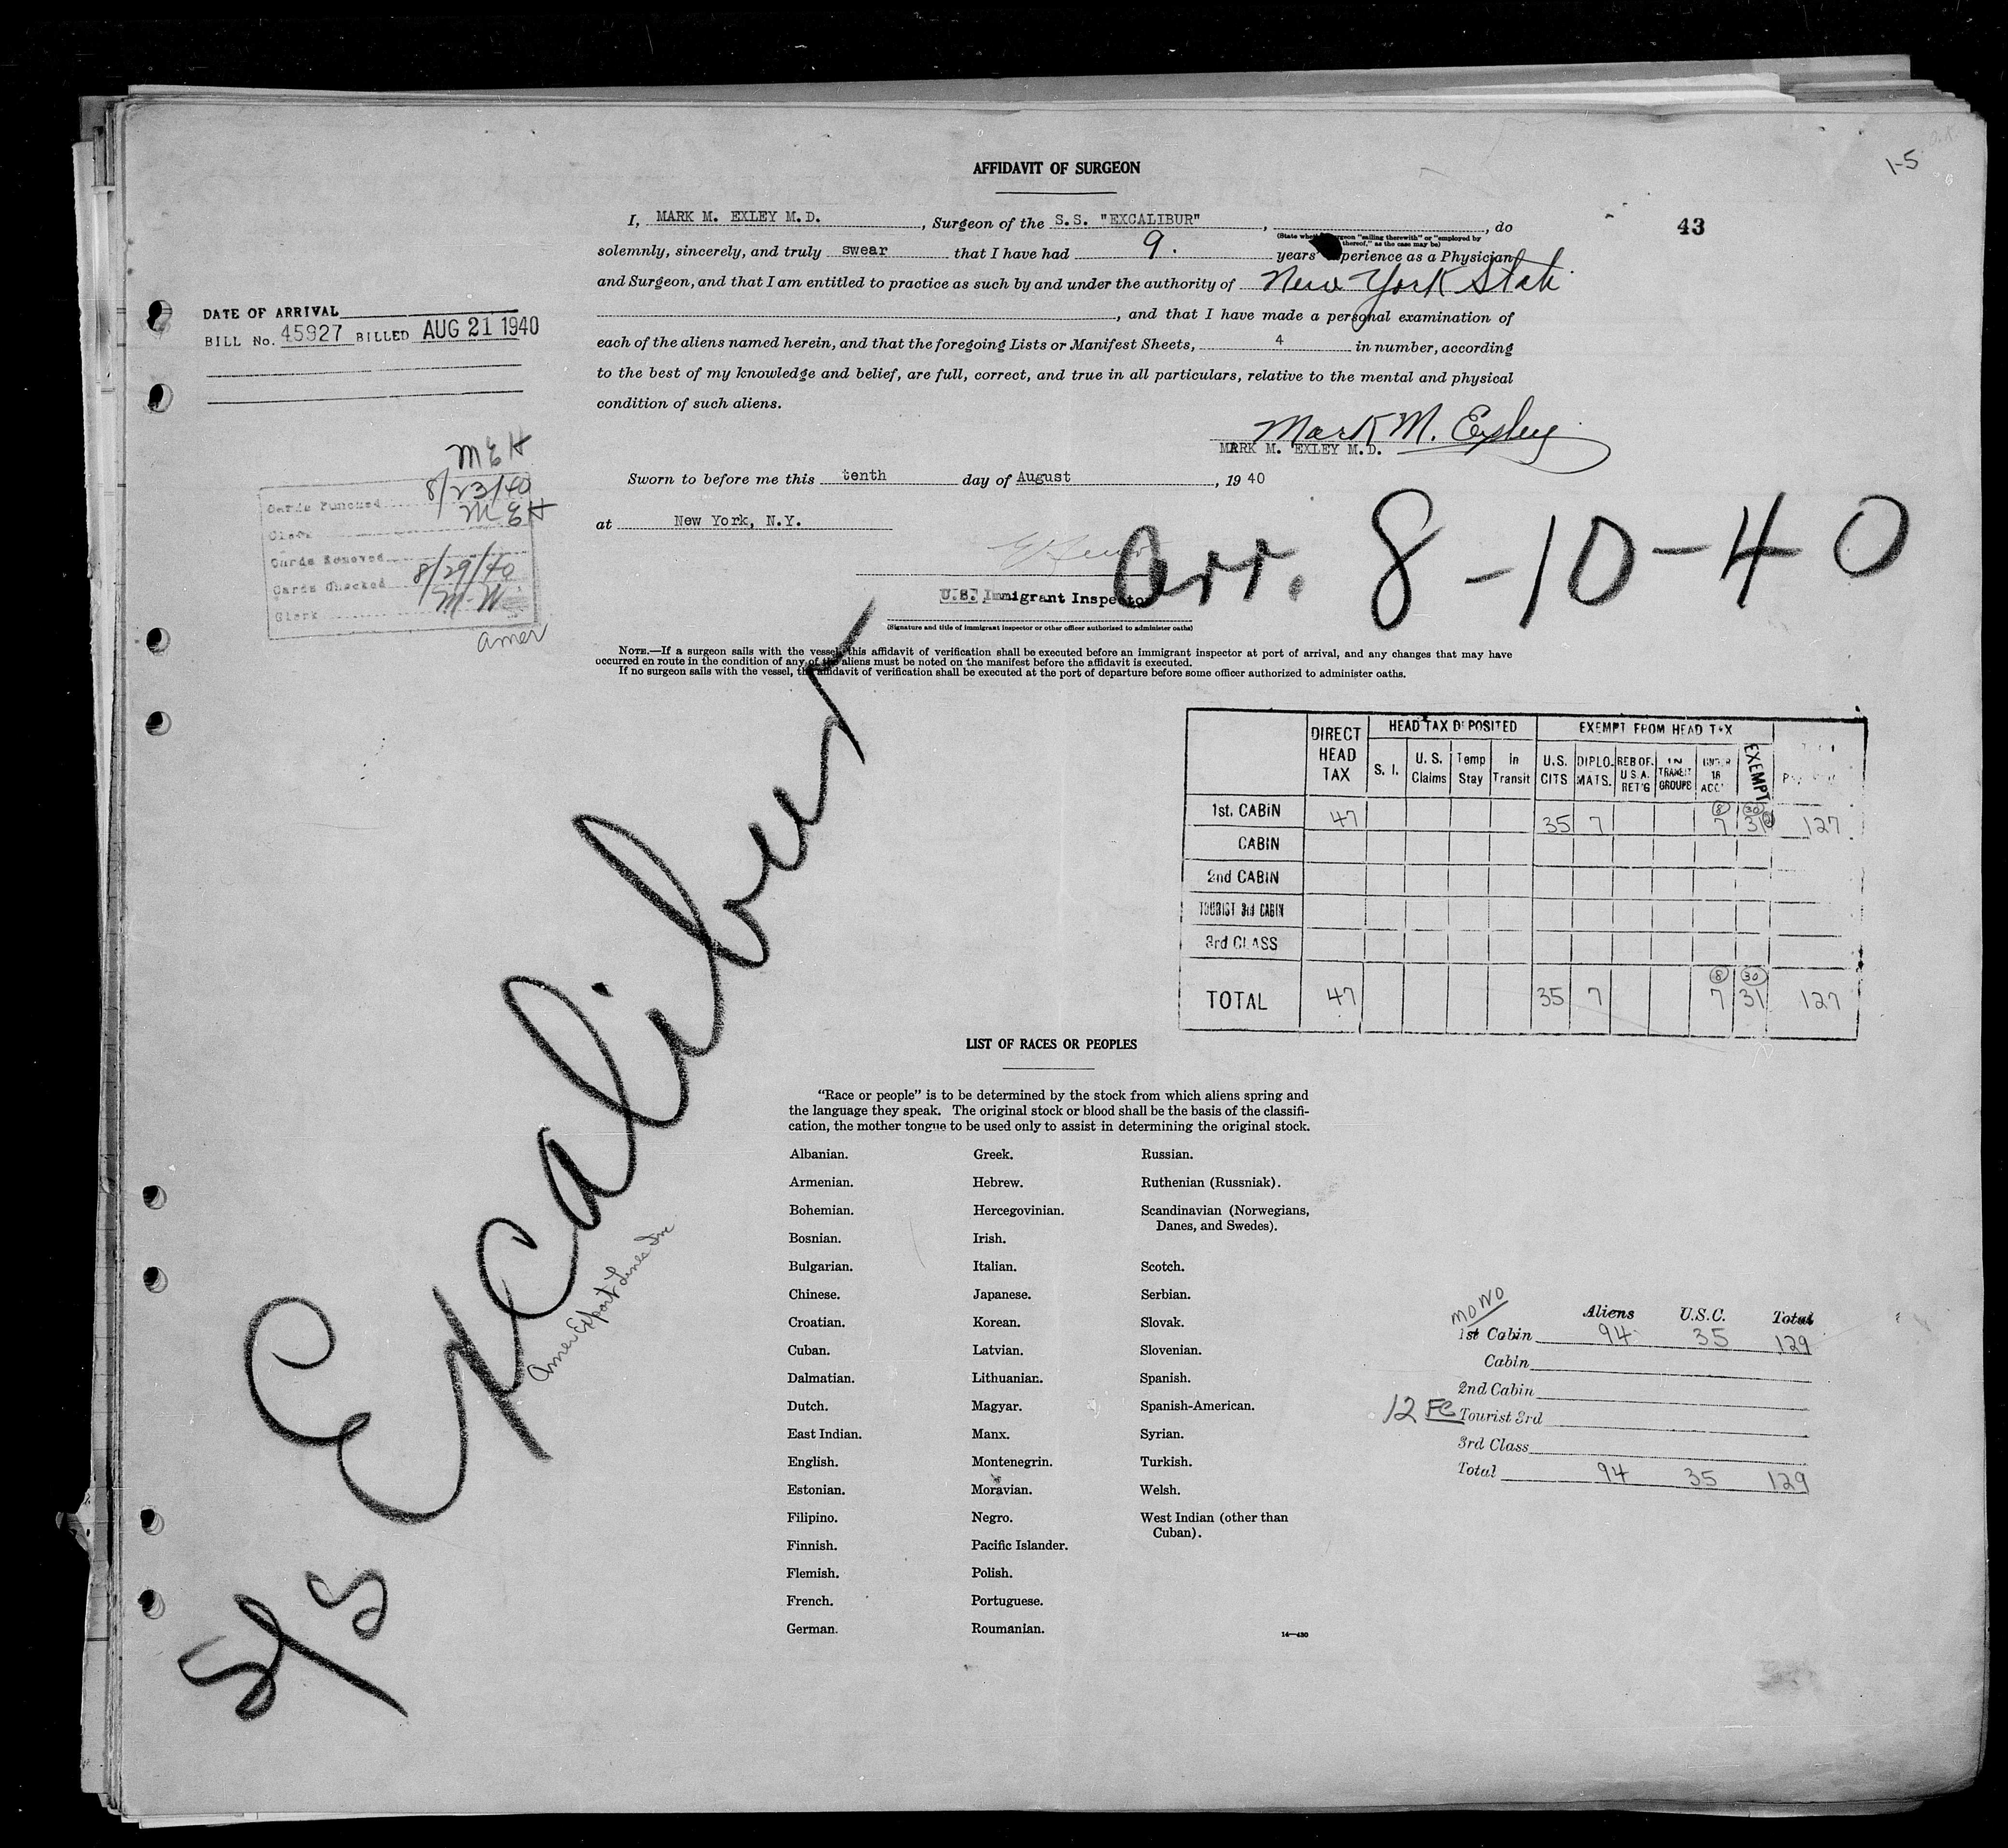 1-5
AFFIDAVIT OF SURGEON
43
I, MARK M. EXLEY M.D. , Surgeon of the S.S. "EXCALIBUR" , , do
(State whether surgeon "sailing therewith" or "employed by
thereof," as the case may be)
solemnly, sincerely, and truly swear that I have had 9. years' experience as a Physician
and Surgeon, and that I am entitled to practice as such by and under the authority of New York State
, and that I have made a personal examination of
each of the aliens named herein, and that the foregoing Lists or Manifest Sheets, 4 in number, according
to the best of my knowledge and belief, are full, correct, and true in all particulars, relative to the mental and physical
condition of such aliens.
Mark M. Exley
MARK M. EXLEY M.D.
Sworn to before me this tenth day of August , 19 40
at New York, N.Y.
Arr. 8-10-40
U.S. Immigrant Inspector
(Signature and title of immigrant inspector or other officer authorized to administer oaths)
NOTE.—If a surgeon sails with the vessel, this affidavit of verification shall be executed before an immigrant inspector at port of arrival, and any changes that may have
occurred en route in the condition of any of the aliens must be noted on the manifest before the affidavit is executed.
If no surgeon sails with the vessel, the affidavit of verification shall be executed at the port of departure before some officer authorized to administer oaths.
DATE OF ARRIVAL
BILL No. 45927 BILLED AUG 21 1940
MEH
Cards Punched 8/23/40
Clerk MEH
Cards Removed
Cards Checked 8/29/40
Clerk M.W
amer
S/S Excalibur
Amer Export Lines Inc
DIRECT HEAD TAX
HEAD TAX DEPOSITED
EXEMPT FROM HEAD TAX
S. I. U. S. Claims Temp Stay In Transit U.S. CITS DIPLO-MATS. REB OF U.S.A. RET'G IN TRANSIT GROUPS UNDER 16 ACC' EXEMPT
8 30
1st. CABIN 47 35 7 7 31 2 127
CABIN
2nd CABIN
TOURIST 3rd CABIN
3rd CLASS
8 30
TOTAL 47 35 7 7 31 127
LIST OF RACES OR PEOPLES
"Race or people" is to be determined by the stock from which aliens spring and
the language they speak. The original stock or blood shall be the basis of the classifi-
cation, the mother tongue to be used only to assist in determining the original stock.
Albanian.
Armenian.
Bohemian.
Bosnian.
Bulgarian.
Chinese.
Croatian.
Cuban.
Dalmatian.
Dutch.
East Indian.
English.
Estonian.
Filipino.
Finnish.
Flemish.
French.
German.
Greek.
Hebrew.
Hercegovinian.
Irish.
Italian.
Japanese.
Korean.
Latvian.
Lithuanian.
Magyar.
Manx.
Montenegrin.
Moravian.
Negro.
Pacific Islander.
Polish.
Portuguese.
Roumanian.
Russian.
Ruthenian (Russniak).
Scandinavian (Norwegians,
Danes, and Swedes).
Scotch.
Serbian.
Slovak.
Slovenian.
Spanish.
Spanish-American.
Syrian.
Turkish.
Welsh.
West Indian (other than
Cuban).
14—430
MONO
Aliens U.S.C. Total
1st Cabin 94 35 129
Cabin
2nd Cabin
12 FC Tourist 3rd
3rd Class
Total 94 35 129